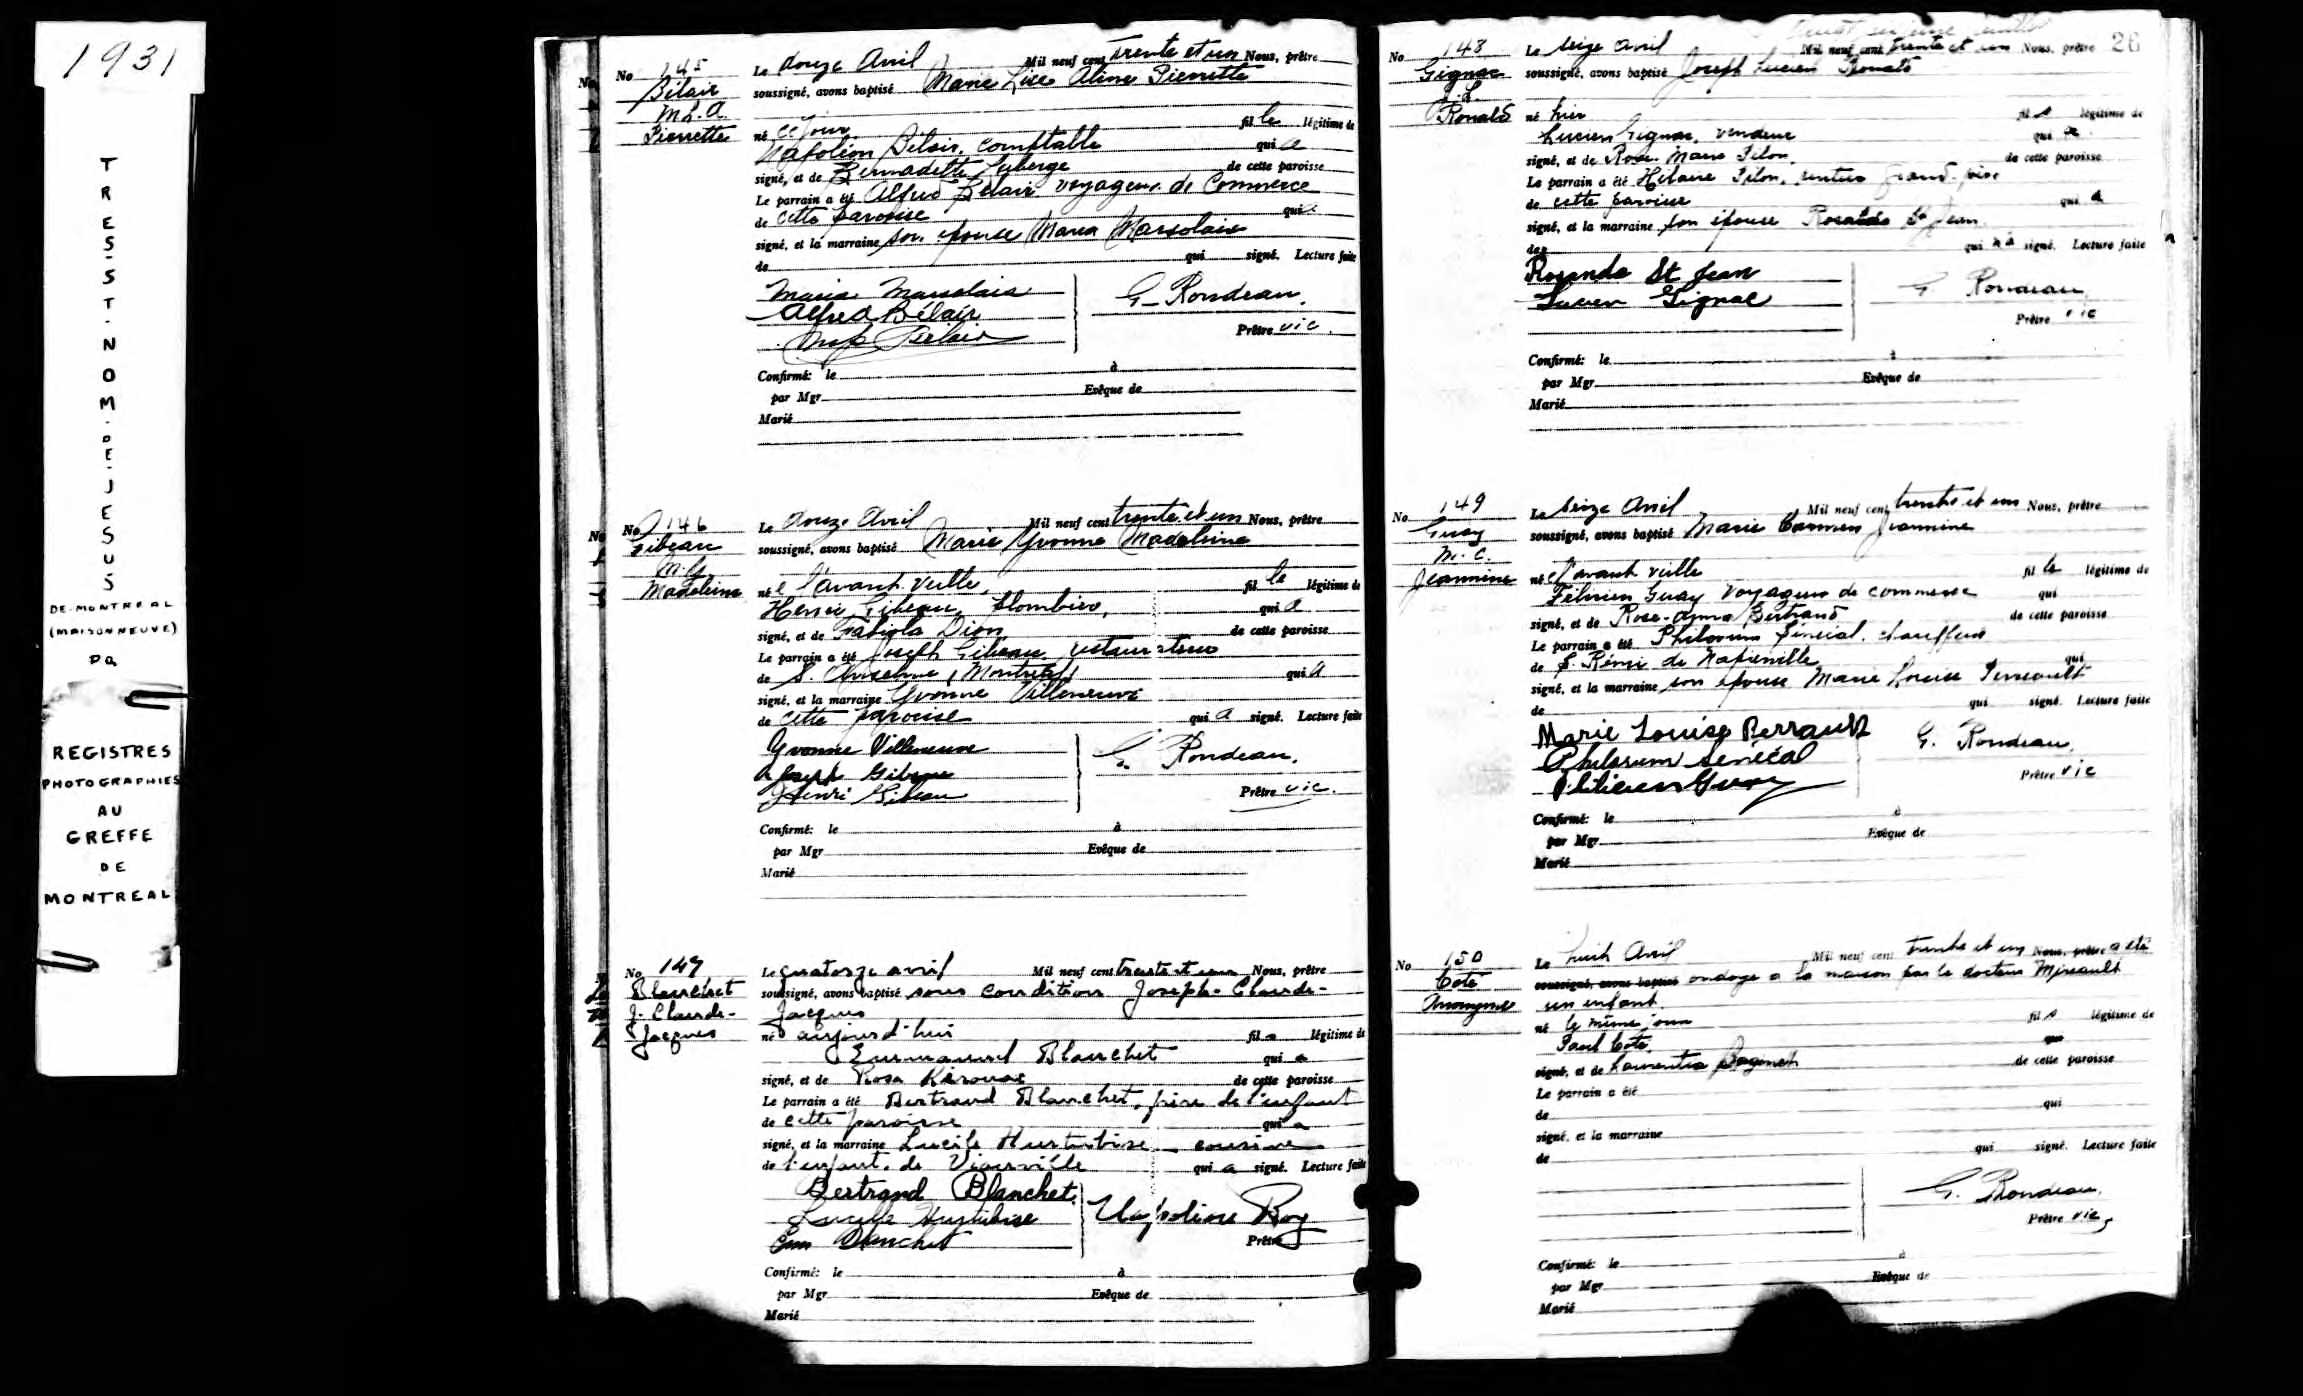 1931
TRES-ST-NOM-DE-JESUS
DE-MONTREAL
(MAISONNEUVE)
REGISTRES
PHOTOGRAPHIES
AU
GREFFE
DE
MONTREAL
No 145
Bélair
M.L.A.
Pierrette
Le douze Avril Mil neuf cent trente et un Nous, prêtre
soussigné, avons baptisé Marie Lise Aline Pierrette
né ce jour fil le légitime de
Napoléon Bélair, comptable qui a
signé, et de Bernadette Laberge de cette paroisse
Le parrain a été Alfred Bélair voyageur de Commerce
de cette paroisse qui a
signé, et la marraine son épouse Maria Marsolais
de qui signé. Lecture faite
Maria Marsolais
Alfred Bélair
Nap Bélair
G. Rondeau,
Prêtre vic.
Confirmé: le à
par Mgr Evêque de
Marié
No 146
Gibeau
M.Y.
Madeleine
Le douze Avril Mil neuf cent trente et un Nous, prêtre
soussigné, avons baptisé Marie Yvonne Madeleine
né e l'avant veille, fil le légitime de
Henri Gibeau, plombier, qui a
signé, et de Fabiola Dion, de cette paroisse
Le parrain a été Joseph Gibeau, restaurateur
de S. Anselme (Montréal) qui a
signé, et la marraine Yvonne Villeneuve
de cette paroisse qui a signé. Lecture faite
Yvonne Villeneuve
Joseph Gibeau
Henri Gibeau
G. Rondeau,
Prêtre vic.
Confirmé: le à
par Mgr Evêque de
Marié
No 147
Blanchet
J. Claude-
Jacques
Le quatorze avril Mil neuf cent trente et un Nous, prêtre
soussigné, avons baptisé sous condition Joseph-Claude-
Jacques
né aujourd'hui fil s légitime de
Emmanuel Blanchet qui a
signé, et de Rosa Kérouac de cette paroisse
Le parrain a été Bertrand Blanchet, frère de l'enfant
de cette paroisse qui a
signé, et la marraine Lucile Hurtubise cousine
de l'enfant, de Viauville qui a signé. Lecture faite
Bertrand Blanchet
Lucille Hurtubise
Em Blanchet
Napoléon Roy
Prêtre
Confirmé: le à
par Mgr Evêque de
Marié
26
No 148
Gignac
J.L.
Ronald
Le seize avril Mil neuf cent trente et un Nous, prêtre
soussigné, avons baptisé Joseph Lucien Ronald
né hier fil s légitime de
Lucien Gignac, vendeur qui a
signé, et de Rose Marie Pilon, de cette paroisse
Le parrain a été Hilaire Pilon, rentier grand-père
de cette paroisse qui a
signé, et la marraine son épouse St Jean
de qui signé. Lecture faite
Rosanda St Jean
Lucien Gignac
G. Rondeau,
Prêtre vic
Confirmé: le à
par Mgr Evêque de
Marié
No 149
Guay
M.C.
Jeannine
Le seize Avril Mil neuf cent trente et un Nous, prêtre
soussigné, avons baptisé Marie Carmen Jeannine
né e l'avant veille fil le légitime de
Félicien Guay voyageur de commerce qui
signé, et de Rose-Anna Bertrand de cette paroisse
Le parrain a été Philorum Sénécal, chauffeur
de S. Rémi de Napierville qui
signé, et la marraine son épouse Marie Louise Perreault
de qui signé. Lecture faite
Marie Louise Perrault
Philorum Sénécal
Félicien Guay
G. Rondeau,
Prêtre vic
Confirmé: le à
par Mgr Evêque de
Marié
No 150
Coté
Anonyme
Le huit Avril Mil neuf cent trente et un Nous, prêtre a été
soussigné, avons baptisé ondoyé à la maison par le docteur Mireault
un enfant
né le même jour fil s légitime de
Paul Coté, qui
signé, et de Laurentia de cette paroisse
Le parrain a été
de qui
signé, et la marraine
de qui signé. Lecture faite
G. Rondeau,
Prêtre vic,
Confirmé: le à
par Mgr Evêque de
Marié